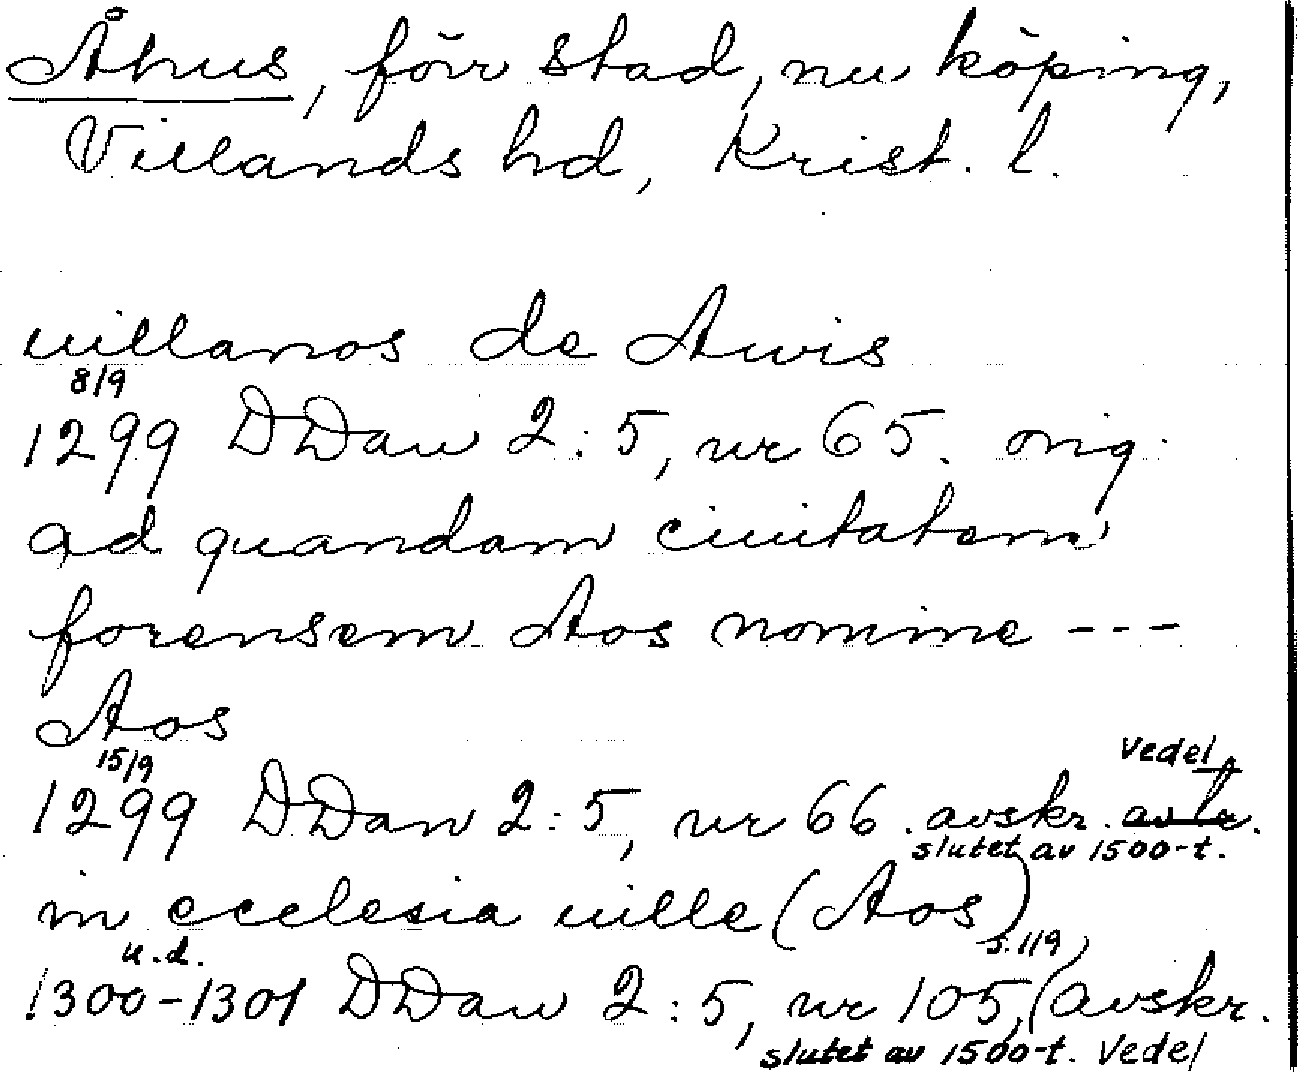 Åhus, förr stad, nu köping,
Villands hd, Krist. l.
uillanos de Awis
8/9
1299 DDan 2:5, nr 65. orig.
ad quandam ciuitatem
forensem Aos nomine ---
Aos
15/9
Vedel
1299 DDan 2:5, nr 66. avskr.
slutet av 1500-t.
in ecclesia uille (Aos)
u.d.
s. 119,
1300-1301 DDan 2:5, nr 105, (avskr.
slutet av 1500-t. Vedel